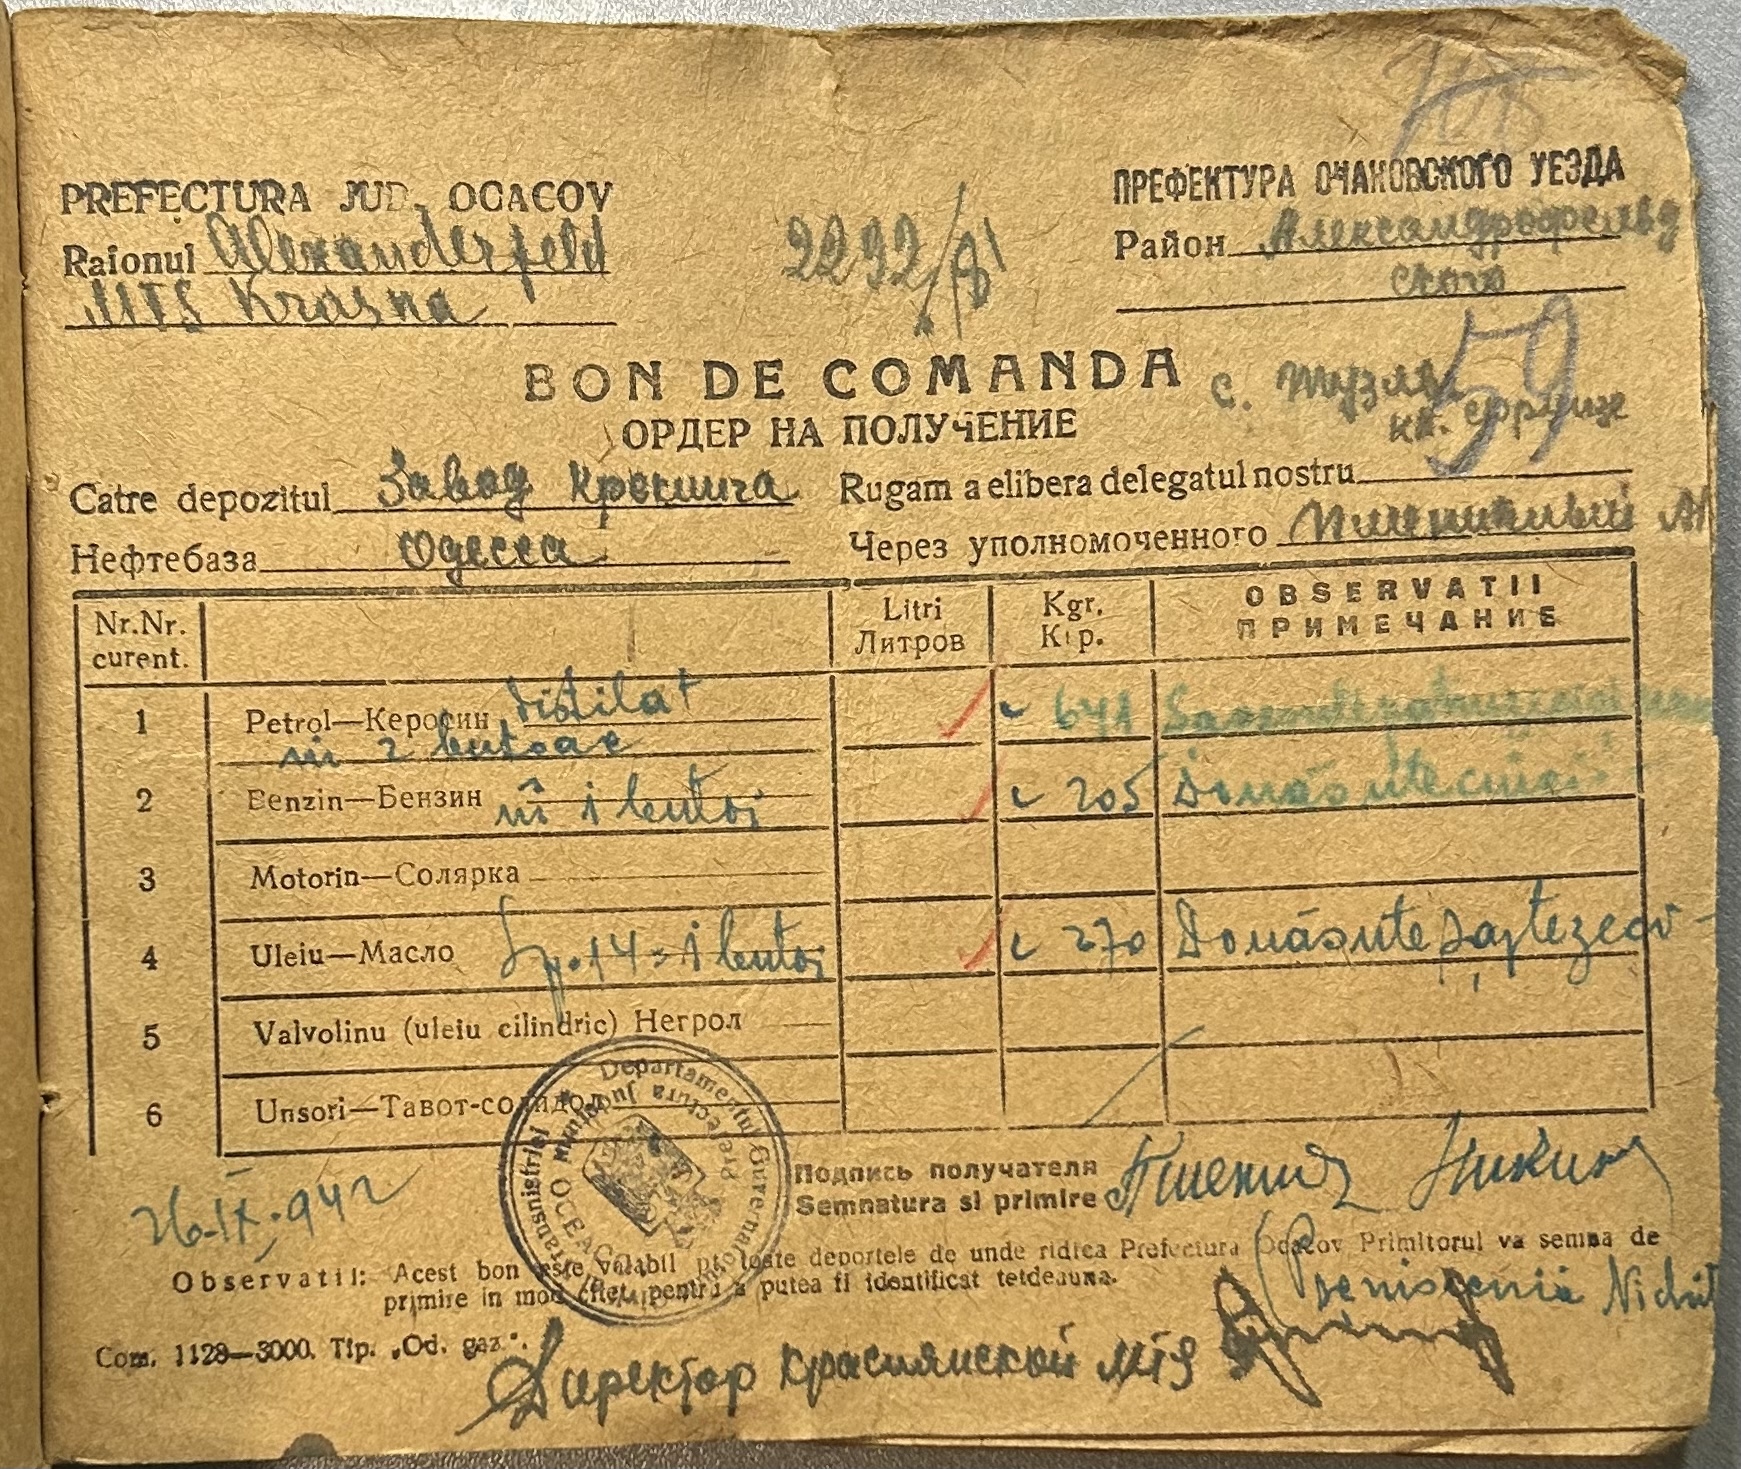 PREFECTURA JUD. OCACOV
Raionul Alexanderfeld
MTS Krasna
2292/
ПРЕФЕКТУРА ОЧАКОВСКОГО УЕЗДА
Район Александрофельд
ского
59
BON DE COMANDA
ОРДЕР НА ПОЛУЧЕНИЕ
с. Тузлы
Catre depozitul Завод Крекинга
Нефтебаза Одесса
Rugam a elibera delegatul nostru
Через уполномоченного
Nr.Nr. curent.
Litri Литров
Kgr. Кгр.
OBSERVATII
ПРИМЕЧАНИЕ
1 Petrol—Керосин distilat
în 2 butoae
2 Benzin—Бензин în 1 butoi 205 Douăsutecinci
3 Motorin—Солярка
4 Uleiu—Масло 14 1 butoi 270 Douăsuteșaptezeci
5 Valvolinu (uleiu cilindric) Негрол
6 Unsori—Тавот-солидол
Departamentul Guvernatorul Transnistriei
Prefectura Județului
26.IX.942
Подпись получателя
Semnatura si primire
Observatii: Acest bon este valabil pt. toate deportele de unde ridica Prefectura Ocacov Primitorul va semna de
primire in mod citet, pentru a putea fi identificat totdeauna.
Com. 1128—3000. Tip. „Od. gaz".
Директор Краснянской МТS